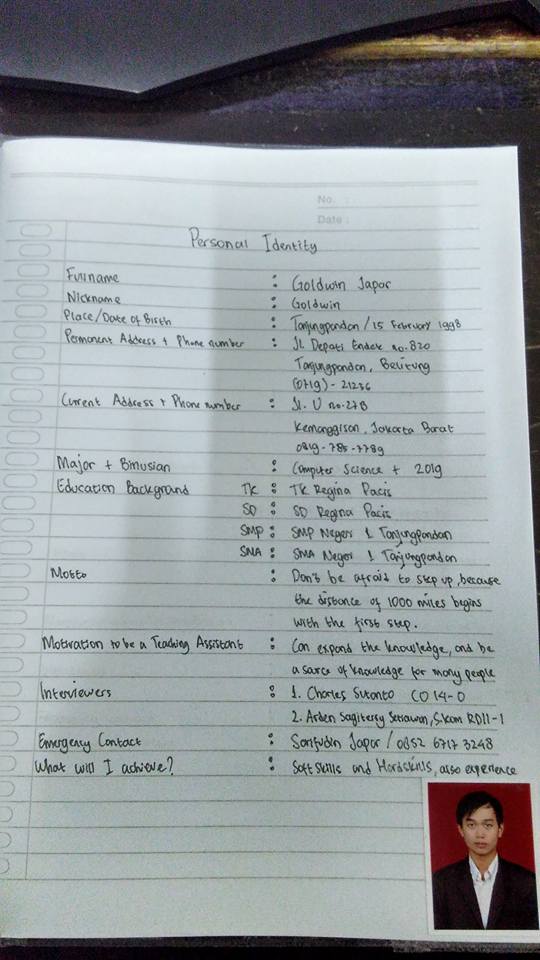 No. :
Date :
Personal Identity
Fullname : Goldwin Japar
Nickname : Goldwin
Place/Date of Birth : Tanjungpandan / 15 February 1998
Permanent Address + Phone number : Jl. Depati Endek no. 820
Tanjungpandan, Belitung
(0719) - 21256
Current Address + Phone number : Jl. U no. 27B
Kemanggisan, Jakarta Barat
0819-785-7789
Major + Binusian : Computer Science + 2019
Education Background TK : TK Regina Pacis
SD : SD Regina Pacis
SMP : SMP Negeri 1 Tanjungpandan
SMA : SMA Negeri 1 Tanjungpandan
Motto : Don't be afraid to step up, because
the distance of 1000 miles begins
with the first step.
Motivation to be a Teaching Assistant : Can expand the knowledge, and be
a source of knowledge for many people
Interviewers : 1. Charles Sutanto CO 14-0
2. Arden Sagiterry Setiawan, S.Kom RD11-1
Emergency Contact : Sarifudin Japar / 0852 6717 3248
What will I achieve? : Soft skills and Hardskills, also experience